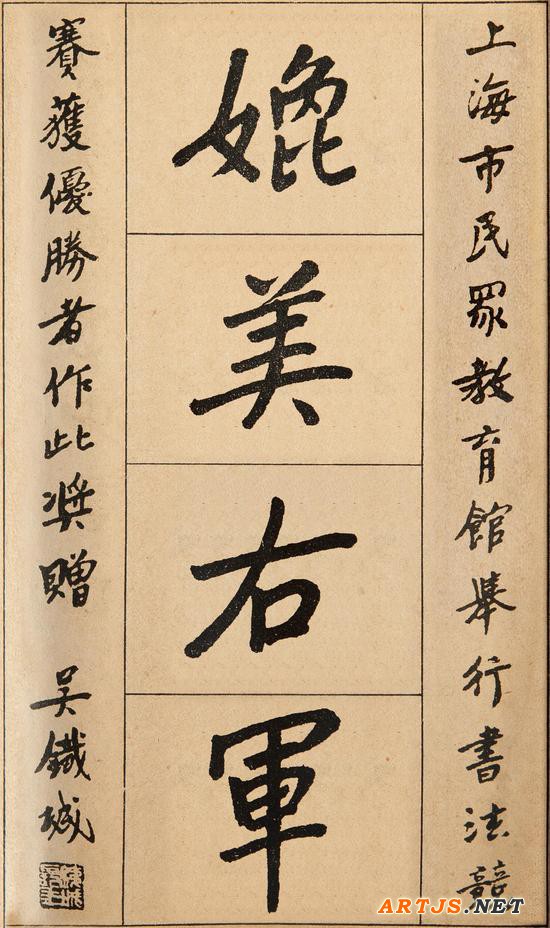 上海市民眾教育館舉行書法競
媲美右軍
賽獲優勝者作此奬贈
吳鐵城
ARTJS.NET